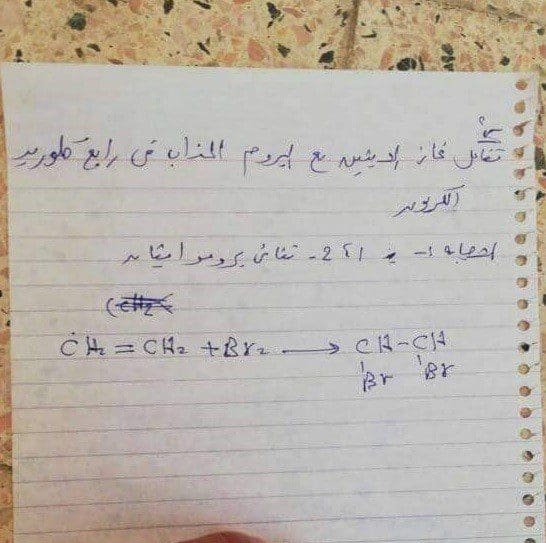 س/
تفاعل غاز الاثيلين مع البروم المذاب في رابع كلوريد
الكربون
الاجابة :- 1،2- ثنائي برومو ايثان
CH2 = CH2 + Br2 → CH-CH
Br Br